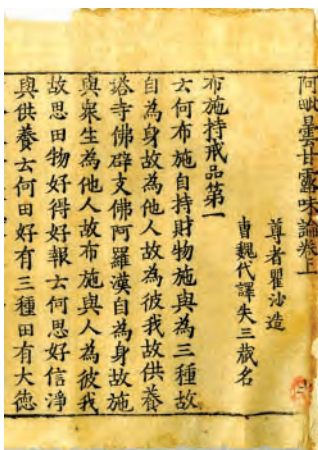 阿毗曇甘露味論卷上
尊者瞿沙造
曹魏代譯失三藏名
布施持戒品第一
云何布施自持財物施與為三種故
自為身故為他人故為彼我故供養
塔寺佛辟支佛阿羅漢自為身故施
與衆生為他人故布施與人為彼我
故思田物好得好報云何思好信淨
與供養云何田好有三種田有大德